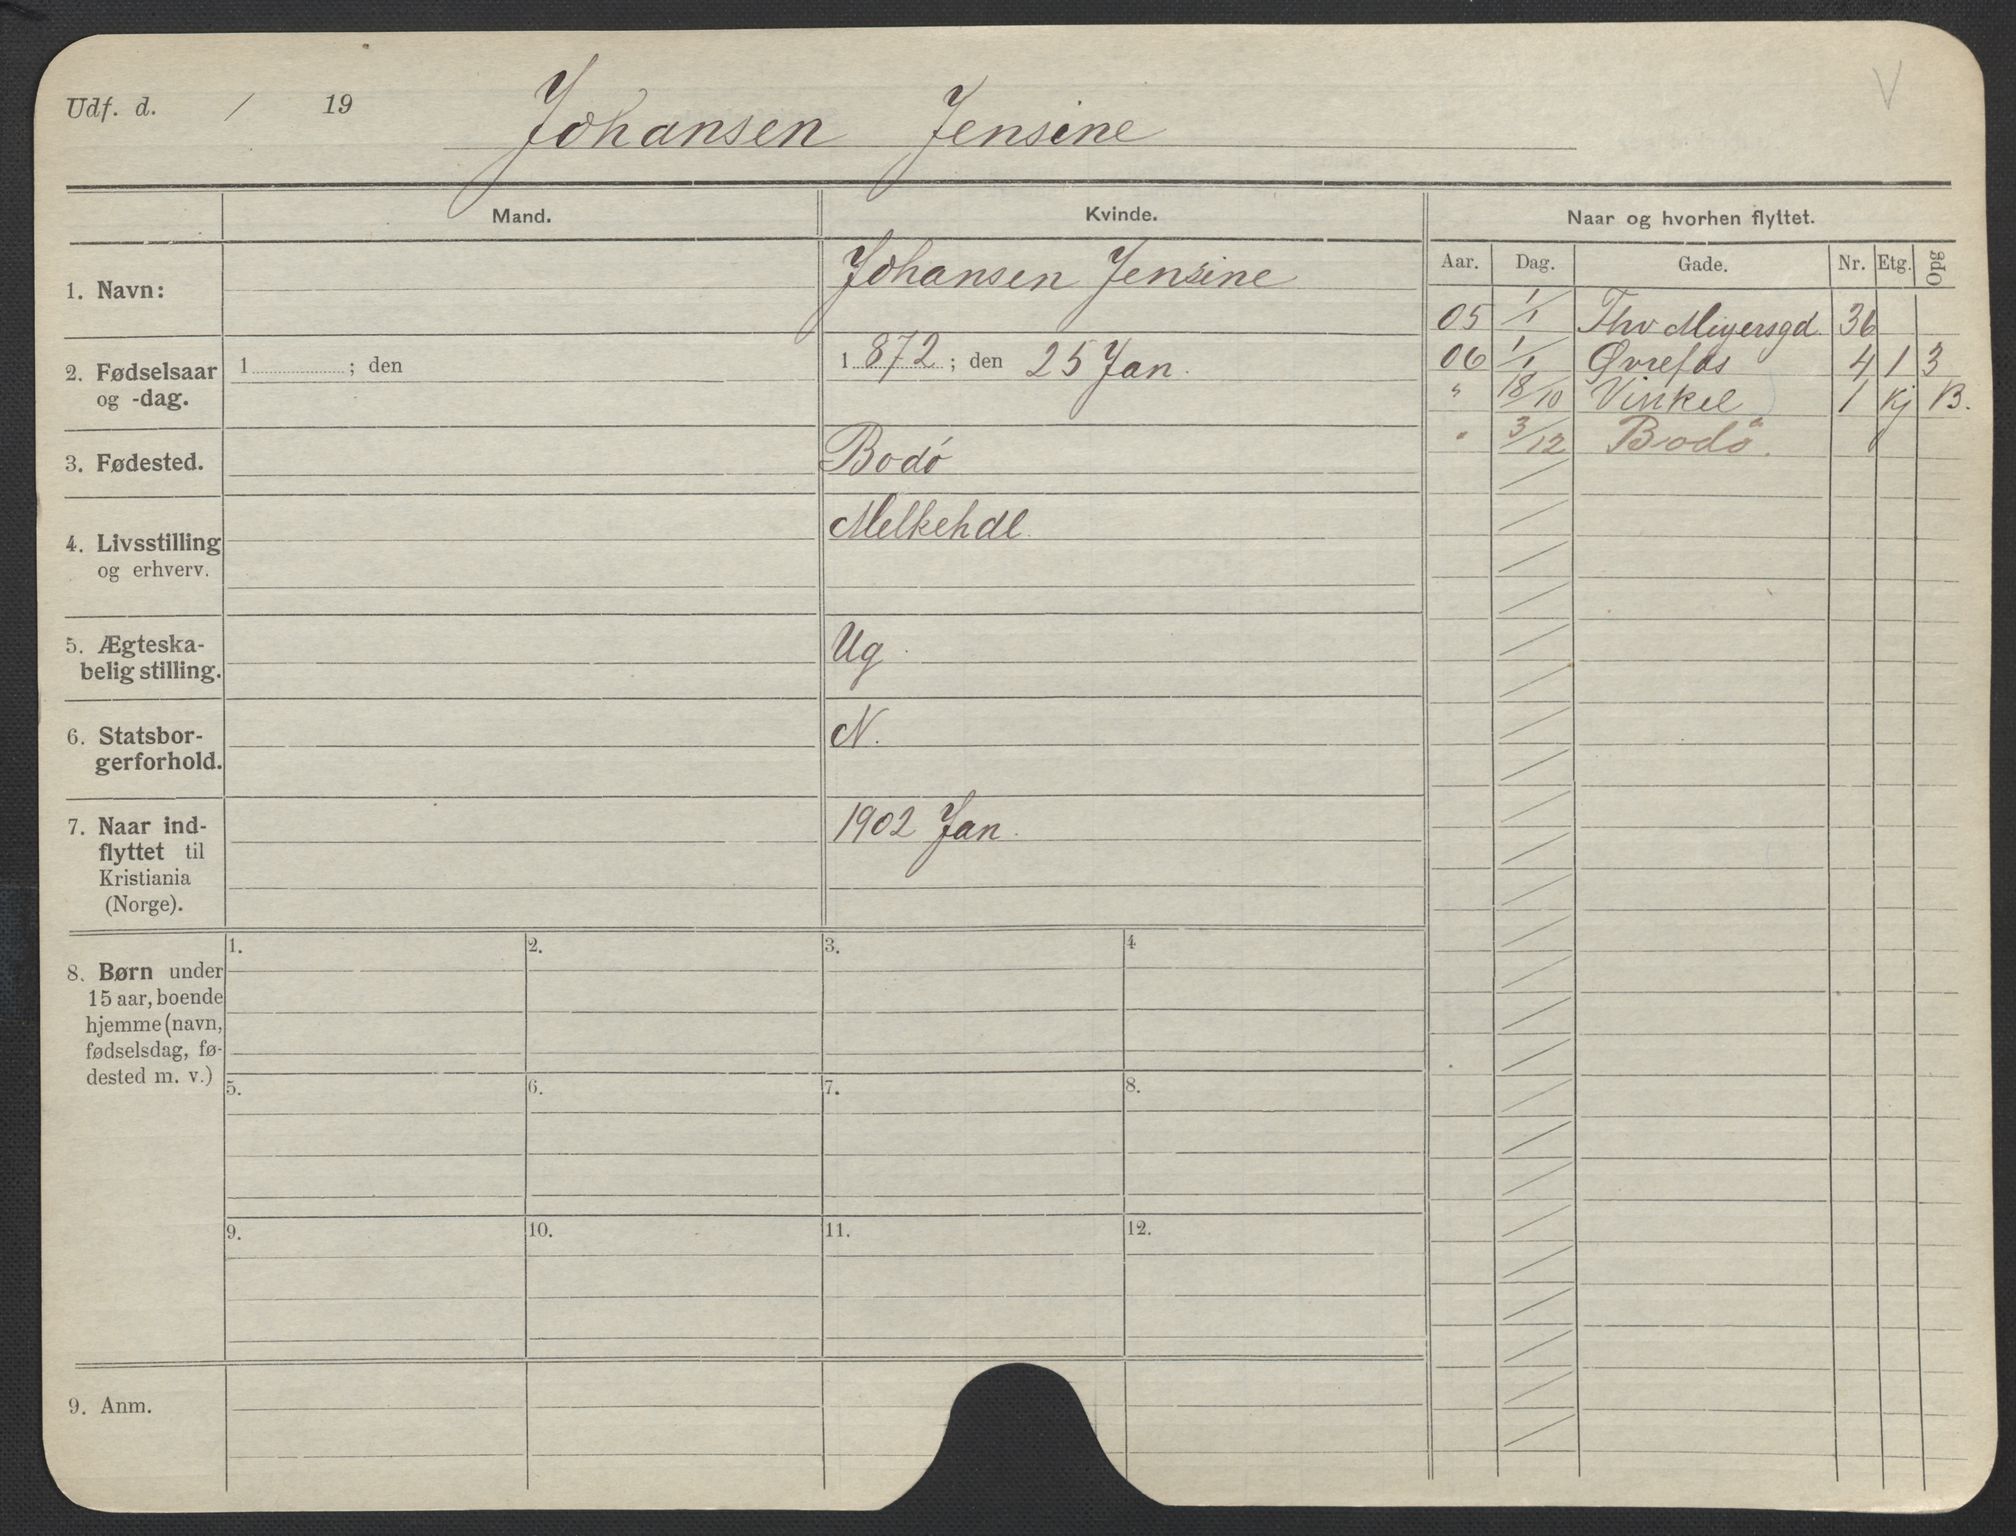 Udf. d. / 19
Johansen Jensine
V
Mand.
Kvinde.
Naar og hvorhen flyttet.
Aar. Dag. Gade. Nr. Etg. Opg
1. Navn:
Johansen Jensine
2. Fødselsaar
og -dag.
1 ; den
1 872 ; den 25 Jan.
3. Fødested.
Bodó
4. Livsstilling
og erhverv.
Melkehdl.
5. Ægteska-
belig stilling.
Ug.
6. Statsbor-
gerforhold.
N.
7. Naar ind-
flyttet til
Kristiania
(Norge).
1902 Jan.
05 1/1 Thv Meyersgd. 36
06 1/1 Øvrefos 4 1 3
" 18/10 Vinkel 1 Kj B.
" 3/12 Bodö.
8. Børn under
15 aar, boende
hjemme (navn,
fødselsdag, fø-
dested m. v.)
1. 2. 3. 4
5. 6. 7. 8.
9. 10. 11. 12.
9. Anm.